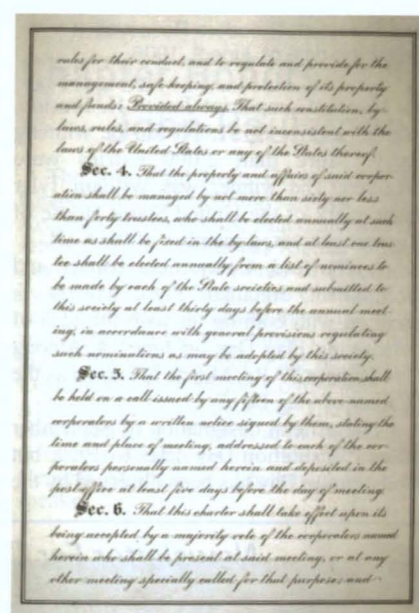 rules for their conduct, and to regulate and provide for the
management, safe keeping, and protection of its property
and funds: Provided always, That such constitution, by-
laws, rules, and regulations be not inconsistent with the
laws of the United States or any of the States thereof.
Sec. 4. That the property and affairs of said corpor-
ation shall be managed by not more than sixty nor less
than forty trustees, who shall be elected annually at such
time as shall be fixed in the by-laws, and at least one trus-
tee shall be elected annually from a list of nominees to
be made by each of the State societies and submitted to
this society at least thirty days before the annual meet-
ing, in accordance with general provisions regulating
such nominations as may be adopted by this society.
Sec. 5. That the first meeting of this corporation shall
be held on a call issued by any fifteen of the above-named
corporators by a written notice signed by them, stating the
time and place of meeting, addressed to each of the cor-
porators personally named herein and deposited in the
post-office at least five days before the day of meeting.
Sec. 6. That this charter shall take effect upon its
being accepted by a majority vote of the corporators named
herein who shall be present at said meeting, or at any
other meeting specially called for that purpose; and